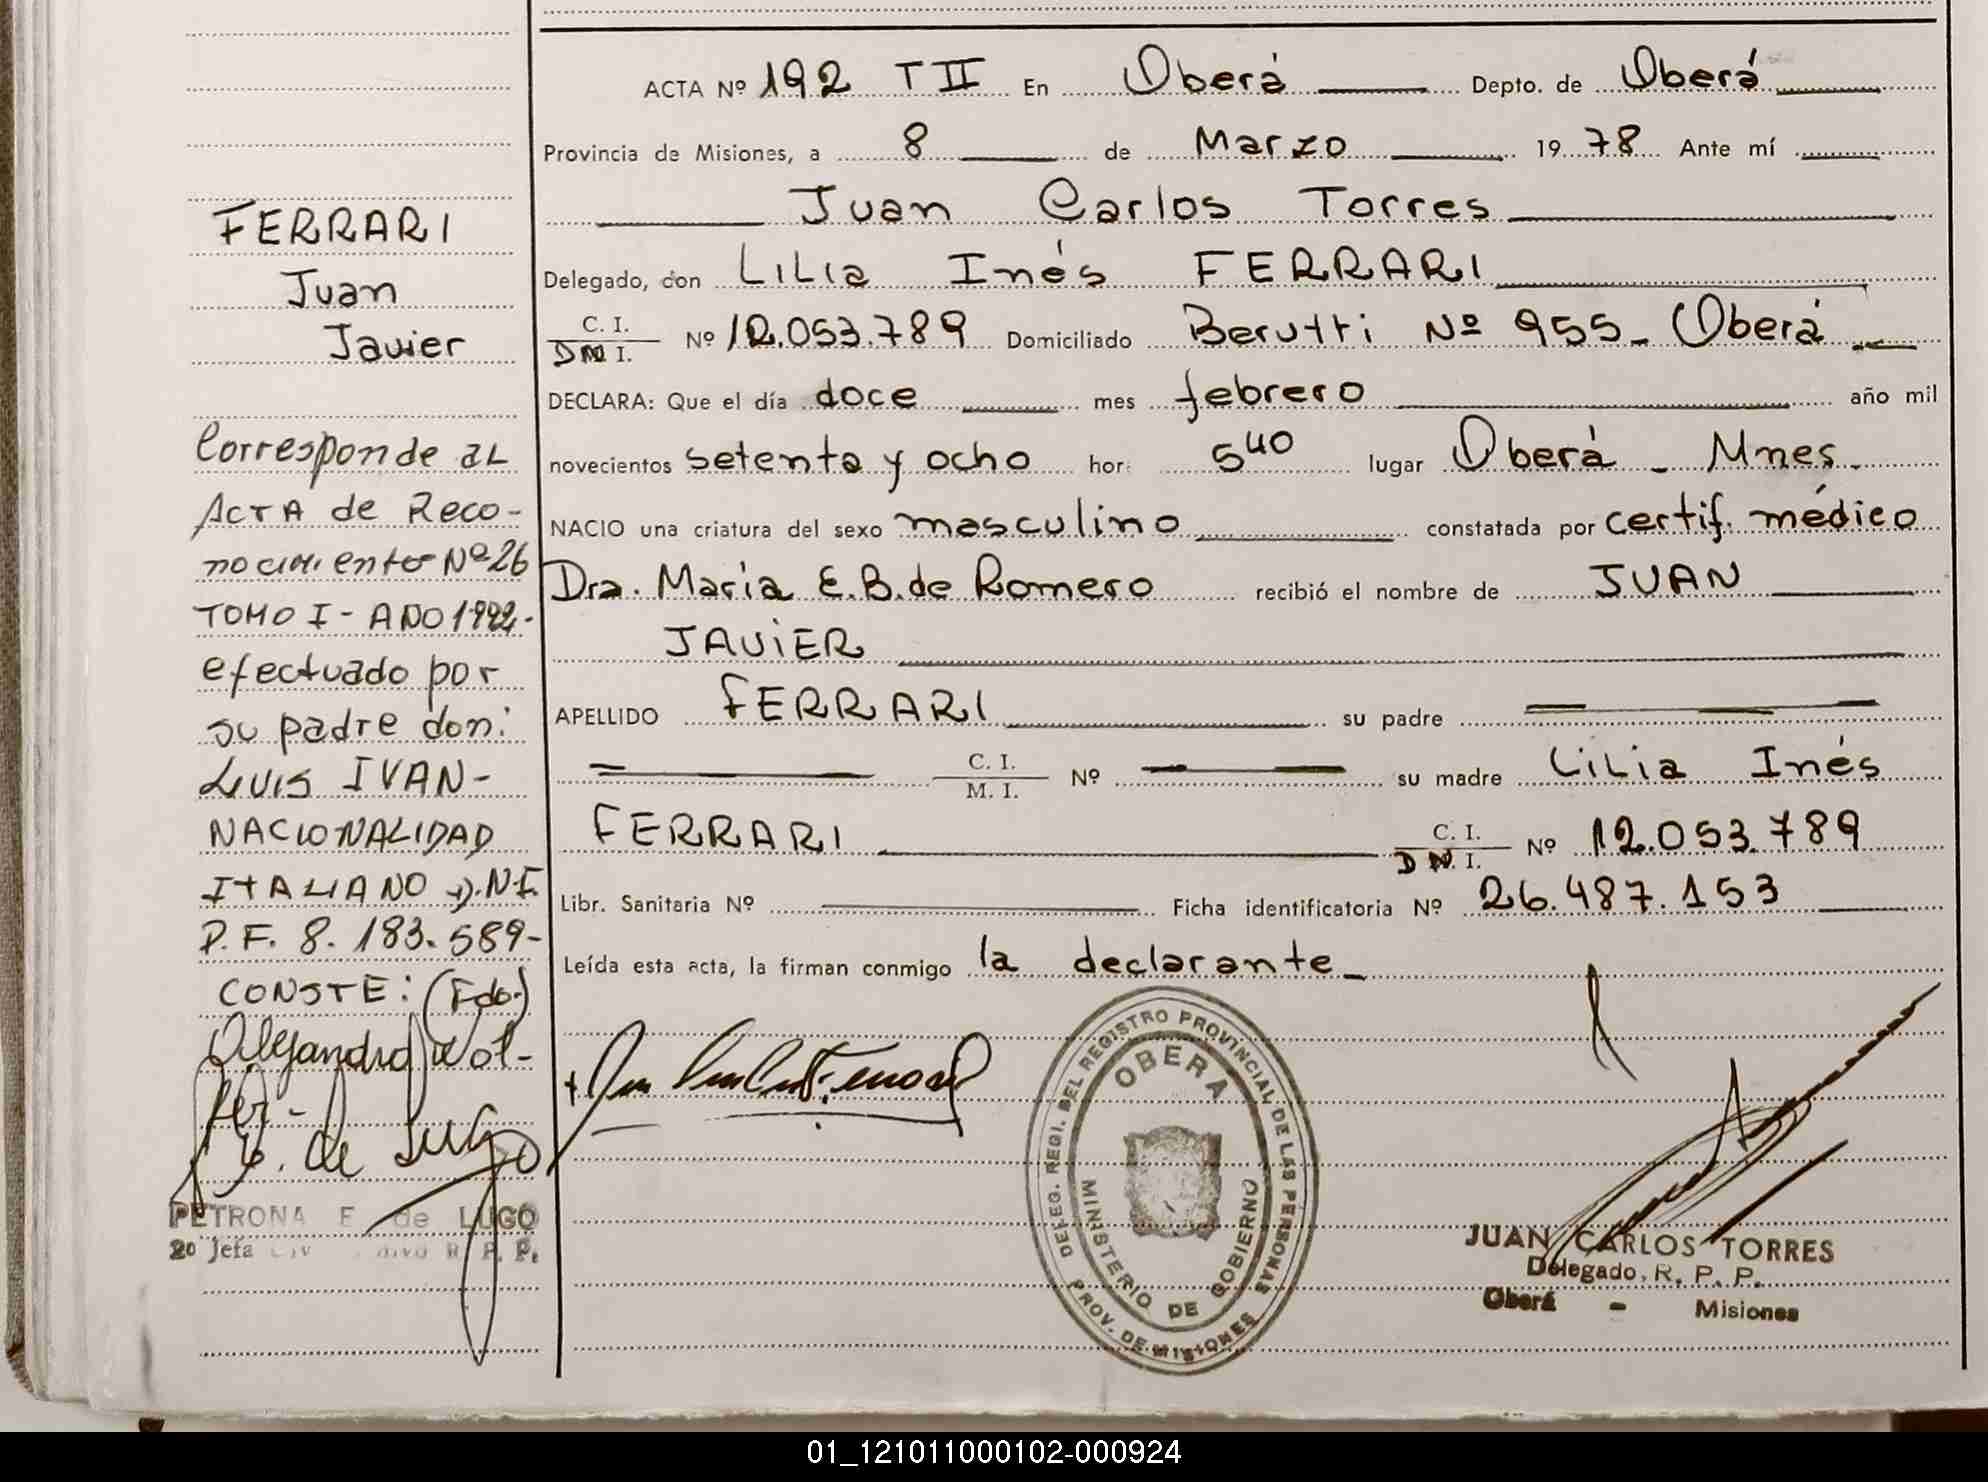 FERRARI
Juan
Javier
Corresponde al
Acta de Reco-
nocimiento Nº 26
TOMO I - AÑO 1992-
efectuado por
su padre don:
LUIS IVAN-
NACIONALIDAD
ITALIANO D.N.I.
P.F. 8.183.589-
CONSTE: (Fdo.)
PETRONA E de LUGO
2º Jefa
R. P. P.
ACTA Nº 192 T II En Oberá Depto. de Oberá
Provincia de Misiones, a 8 de Marzo 1978 Ante mí
Juan Carlos Torres
Delegado, don Lilia Inés FERRARI
C. I.
DNI. Nº 12.053.789 Domiciliado Berutti Nº 955 - Oberá
DECLARA: Que el día doce mes febrero año mil
novecientos setenta y ocho hor: 5 40 lugar Oberá - Mnes.
NACIO una criatura del sexo masculino constatada por certif. médico
Dra. Maria E. B. de Romero recibió el nombre de JUAN
JAVIER
APELLIDO FERRARI su padre
C. I.
M. I. Nº su madre Lilia Inés
FERRARI C. I.
DNI. Nº 12.053.789
Libr. Sanitaria Nº Ficha identificatoria Nº 26.487.153
Leída esta acta, la firman conmigo la declarante
DELEG. REGI. DEL REGISTRO PROVINCIAL DE LAS PERSONAS
OBERA
MINISTERIO DE GOBIERNO
PROV. DE MISIONES
JUAN CARLOS TORRES
Delegado, R. P. P.
Oberá - Misiones
01_121011000102-000924